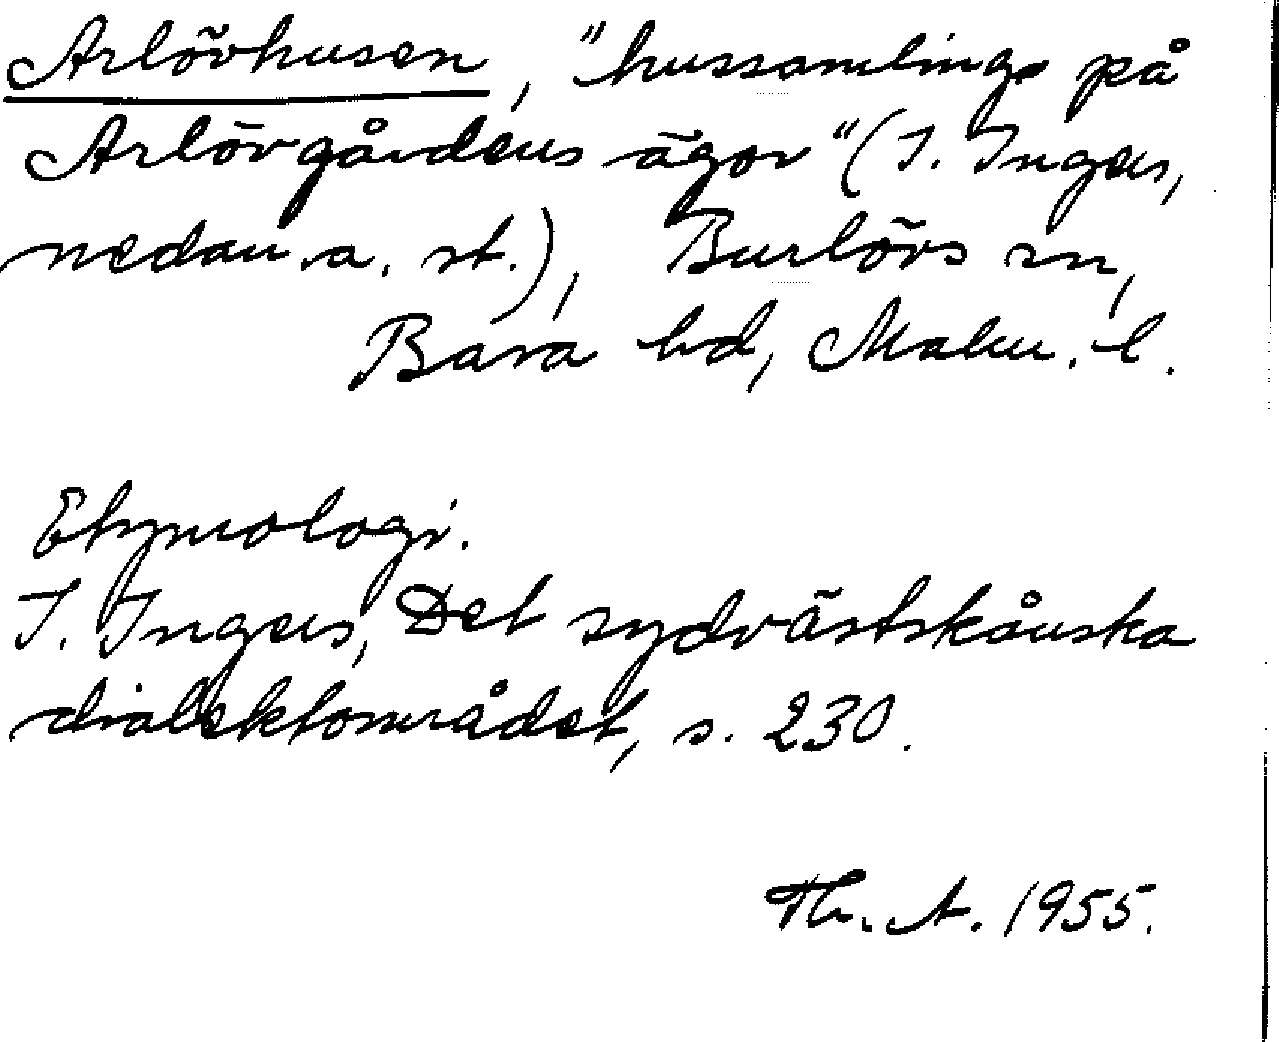 Arlövhusen, "hussamling på
Arlövgårdens ägor" (I. Ingers,
nedan a. st.), Burlövs sn,
Bara hd, Malm. l.
Etymologi.
I. Ingers, Det sydvästskånska
dialektområdet, s. 230.
Th. A. 1955.